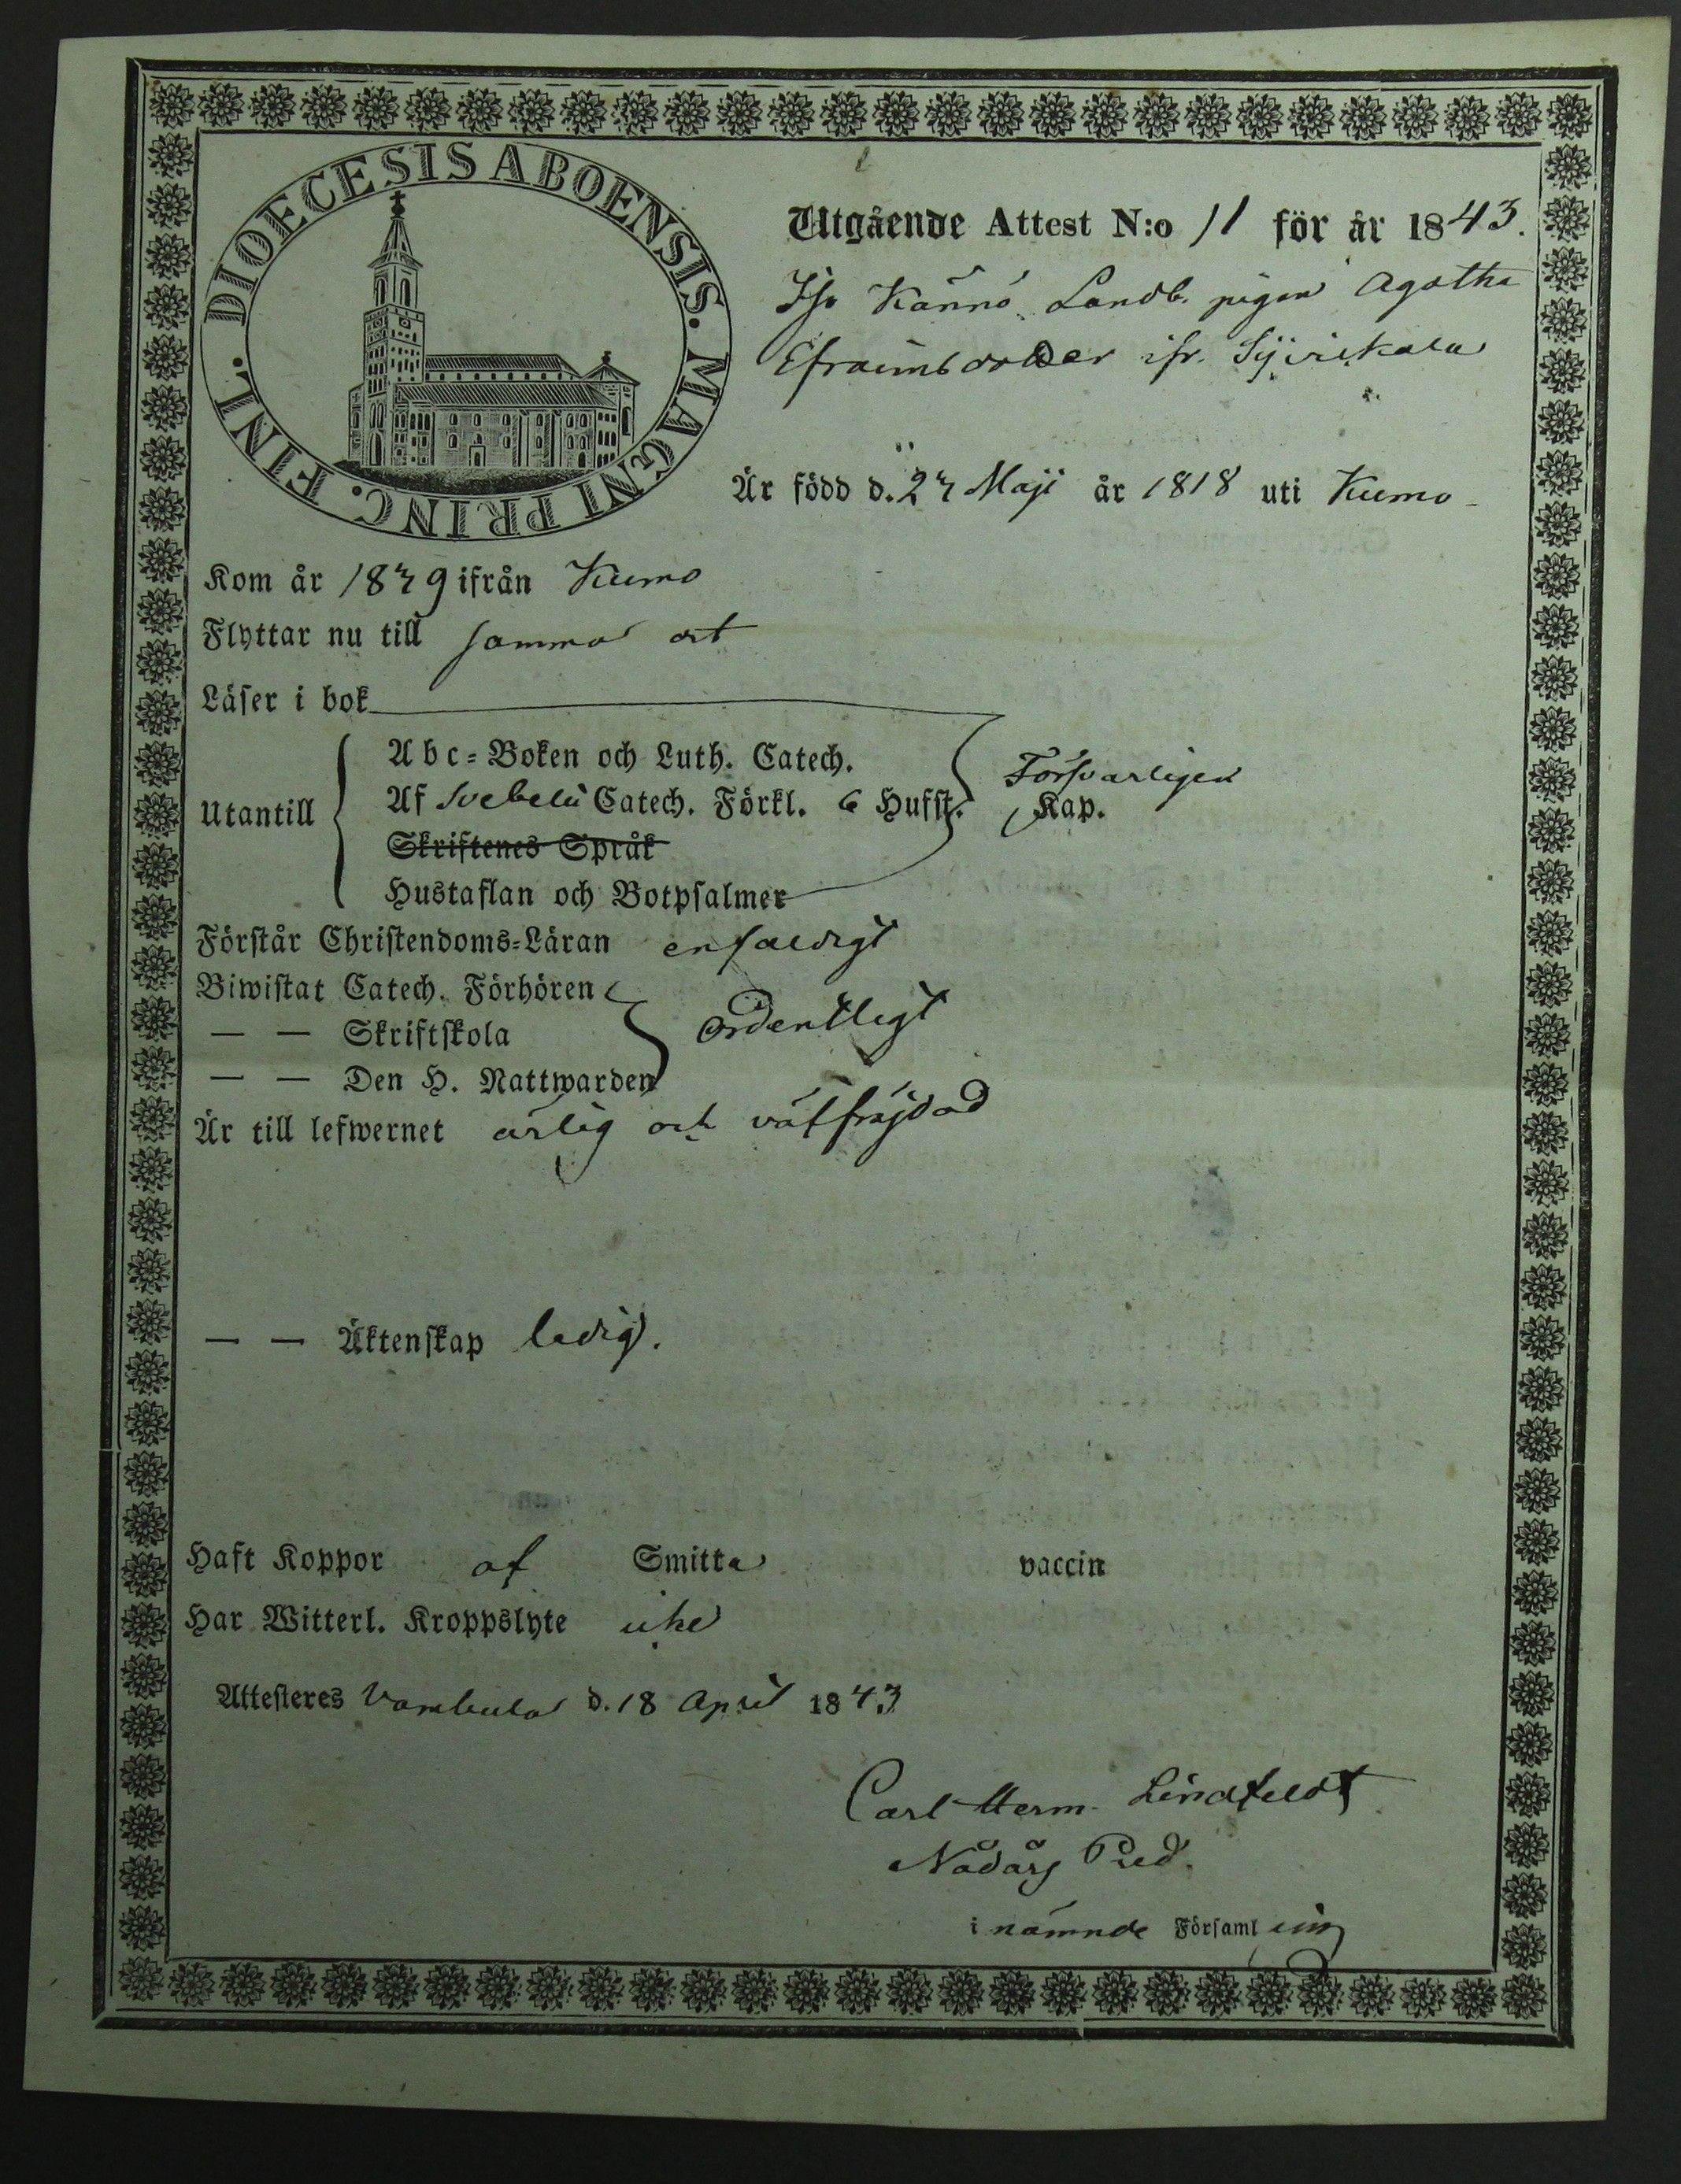 DIOECESIS ABOENSIS. MAGNI PRINC. FINL.
Utgående Attest N:o 11 för år 1843.
Känno Landb. pigan Agatha
Efraimsdotter ifr.
Är född d. 27 Maji år 1818 uti Kumo
Kom år 1839 ifrån Kumo
Flyttar nu till samma ort
Läser i bok
Utantill
Abc-Boken och Luth. Catech.
Af Svebelii Catech. Förkl. 6 Hufst. Kap.
Försvarligen
Skriftenes Språk
Hustaflan och Botpsalmer
Förstår Christendoms-Läran enfaldigt
Biwistat Catech. Förhören
— — Skriftskola ordentligt
— — Den H. Nattwarden
Är till lefwernet ärlig och välfräjdad
— — Äktenskap ledig.
Haft Koppor af Smitta vaccin
Har Witterl. Kroppslyte icke
Attesteres Vambula d. 18 April 1843
Carl Herm. Lindfeldt
Nådårs Pred.
i nämnde Församling